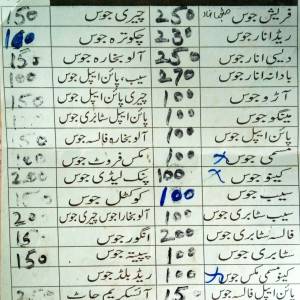 فریش جوس 250 چیری جوس 150
ریڈ انار جوس 230 چکوترہ جوس 160
دیسی انار جوس 250 آلو بخارہ جوس 150
بادانہ انار جوس 270 سیب، پائن ایپل جوس 100
آڑو جوس 100 چیری پائن ایپل جوس 150
مینگو جوس 100 پائن ایپل سٹابری جوس
پائن ایپل جوس 100 آلو بخارہ فالسہ جوس
مسمی جوس 100 مکس فروٹ جوس
کینو جوس 100 پنک لیڈی جوس 200
سیب جوس 100 کوکٹیل جوس 150
سیب سٹابری جوس آلو بخارا جوس چیری جوس 200
فالسہ سٹابری جوس 200 انگور جوس 150
سٹابری جوس 100 پپیتہ جوس 150
کینو مسمی مکس جوس 100 ریڈ بلڈ جوس
فالسہ جوس 150 آئسکریم چاٹ